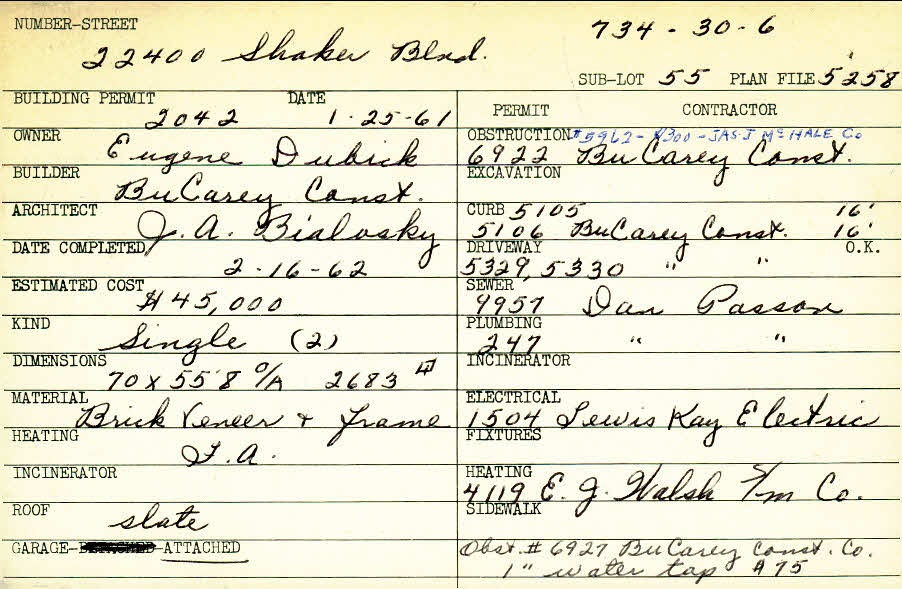 NUMBER-STREET 734-30-6
22400 Shaker Blvd.
SUB-LOT 55 PLAN FILE 5258
BUILDING PERMIT DATE
2042 1-25-61
OWNER
Eugene Dubick
BUILDER
BuCarey Const.
ARCHITECT
J.A. Bialosky
DATE COMPLETED
2-16-62
ESTIMATED COST
$45,000
KIND
Single (2)
DIMENSIONS
70 x 55'8 O/A 2683
MATERIAL
Brick Veneer + frame
HEATING
F.A.
INCINERATOR
ROOF
slate
GARAGE- -ATTACHED
PERMIT CONTRACTOR
OBSTRUCTION #5962-$300-JAS.J McHALE Co
6922 BuCarey Const.
EXCAVATION
CURB 5105 16'
5106 BuCarey Const. 16'
DRIVEWAY O.K.
5329, 5330 " "
SEWER
9957 Dan Passon
PLUMBING
247 " "
INCINERATOR
ELECTRICAL
1504 Lewis Kay Electric
FIXTURES
HEATING
4119 E.J. Walsh S/m Co.
SIDEWALK
Obst. # 6927 BuCarey Const. Co.
1" water tap $75